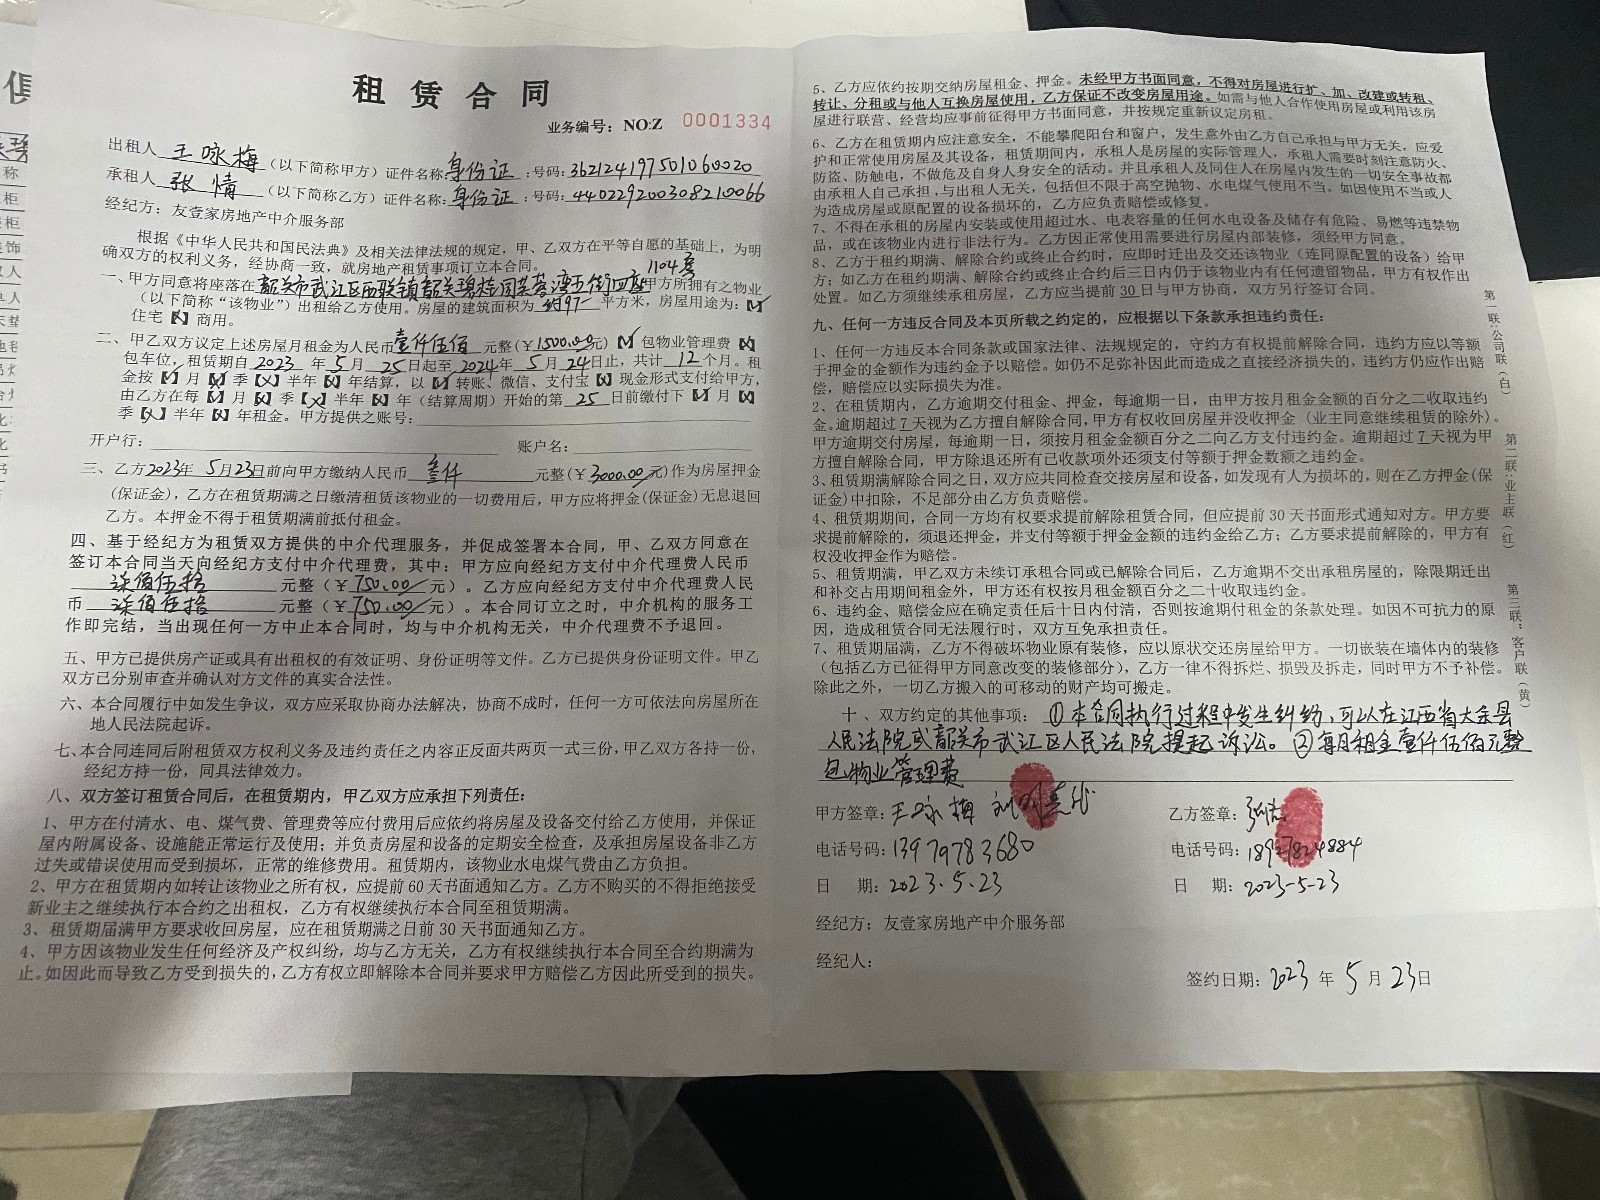 租赁合同
业务编号：NO:Z 0001334
出租人 王咏梅（以下简称甲方）证件名称：身份证；号码：362124197501060020
承租人 张情（以下简称乙方）证件名称：身份证；号码：440229200308210066
经纪方：友壹家房地产中介服务部
根据《中华人民共和国民法典》及相关法律法规的规定，甲、乙双方在平等自愿的基础上，为明
确双方的权利义务，经协商一致，就房地产租赁事项订立本合同。
1104房
一、甲方同意将座落在韶关市武江区西联镇韶关碧桂园芙蓉湾五街四座甲方所拥有之物业
（以下简称“该物业”）出租给乙方使用。房屋的建筑面积为 约97 平方米，房屋用途为：【✓】
住宅【×】商用。
二、甲乙双方议定上述房屋月租金为人民币壹仟伍佰 元整（￥1500.00元）【✓】包物业管理费【×】
包车位，租赁期自 2023 年 5 月 25 日起至 2024 年 5 月 24 日止，共计 12 个月。租
金按【✓】月【×】季【×】半年【×】年结算，以【✓】转账、微信、支付宝【×】现金形式支付给甲方，
由乙方在每【✓】月【×】季【×】半年【×】年（结算周期）开始的第 25 日前缴付下【✓】月【×】
季【×】半年【×】年租金。甲方提供之账号：
开户行： 账户名：
三、乙方2023年 5月23日前向甲方缴纳人民币 叁仟 元整（￥3000.00元）作为房屋押金
(保证金)，乙方在租赁期满之日缴清租赁该物业的一切费用后，甲方应将押金(保证金)无息退回
乙方。本押金不得于租赁期满前抵付租金。
四、基于经纪方为租赁双方提供的中介代理服务，并促成签署本合同，甲、乙双方同意在
签订本合同当天向经纪方支付中介代理费，其中：甲方应向经纪方支付中介代理费人民币
柒佰伍拾 元整（￥750.00元）。乙方应向经纪方支付中介代理费人民
币 柒佰伍拾 元整（￥750.00元）。本合同订立之时，中介机构的服务工
作即完结，当出现任何一方中止本合同时，均与中介机构无关，中介代理费不予退回。
五、甲方已提供房产证或具有出租权的有效证明、身份证明等文件。乙方已提供身份证明文件。甲乙
双方已分别审查并确认对方文件的真实合法性。
六、本合同履行中如发生争议，双方应采取协商办法解决，协商不成时，任何一方可依法向房屋所在
地人民法院起诉。
七、本合同连同后附租赁双方权利义务及违约责任之内容正反面共两页一式三份，甲乙双方各持一份，
经纪方持一份，同具法律效力。
八、双方签订租赁合同后，在租赁期内，甲乙双方应承担下列责任：
1、甲方在付清水、电、煤气费、管理费等应付费用后应依约将房屋及设备交付给乙方使用，并保证
屋内附属设备、设施能正常运行及使用；并负责房屋和设备的定期安全检查，及承担房屋设备非乙方
过失或错误使用而受到损坏，正常的维修费用。租赁期内，该物业水电煤气费由乙方负担。
2、甲方在租赁期内如转让该物业之所有权，应提前60天书面通知乙方。乙方不购买的不得拒绝接受
新业主之继续执行本合约之出租权，乙方有权继续执行本合同至租赁期满。
3、租赁期届满甲方要求收回房屋，应在租赁期满之日前30天书面通知乙方。
4、甲方因该物业发生任何经济及产权纠纷，均与乙方无关，乙方有权继续执行本合同至合约期满为
止。如因此而导致乙方受到损失的，乙方有权立即解除本合同并要求甲方赔偿乙方因此所受到的损失。
5、乙方应依约按期交纳房屋租金、押金。未经甲方书面同意，不得对房屋进行扩、加、改建或转租、
转让、分租或与他人互换房屋使用，乙方保证不改变房屋用途。如需与他人合作使用房屋或利用该房
屋进行联营、经营均应事前征得甲方书面同意，并按规定重新议定房租。
6、乙方在租赁期内应注意安全，不能攀爬阳台和窗户，发生意外由乙方自己承担与甲方无关，应爱
护和正常使用房屋及其设备，租赁期间内，承租人是房屋的实际管理人，承租人需要时刻注意防火、
防盗、防触电，不做危及自身人身安全的活动。并且承租人及同住人在房屋内发生的一切安全事故都
由承租人自己承担，与出租人无关，包括但不限于高空抛物、水电煤气使用不当。如因使用不当或人
为造成房屋或原配置的设备损坏的，乙方应负责赔偿或修复。
7、不得在承租的房屋内安装或使用超过水、电表容量的任何水电设备及储存有危险、易燃等违禁物
品，或在该物业内进行非法行为。乙方因正常使用需要进行房屋内部装修，须经甲方同意。
8、乙方于租约期满、解除合约或终止合约时，应即时迁出及交还该物业（连同原配置的设备）给甲
方；如乙方在租约期满、解除合约或终止合约后三日内仍于该物业内有任何遗留物品，甲方有权作出
处置。如乙方须继续承租房屋，乙方应当提前 30 日与甲方协商，双方另行签订合同。
九、任何一方违反合同及本页所载之约定的，应根据以下条款承担违约责任：
1、任何一方违反本合同条款或国家法律、法规规定的，守约方有权提前解除合同，违约方应以等额
于押金的金额作为违约金予以赔偿。如仍不足弥补因此而造成之直接经济损失的，违约方仍应作出赔
偿，赔偿应以实际损失为准。
2、在租赁期内，乙方逾期交付租金、押金，每逾期一日，由甲方按月租金金额的百分之二收取违约
金。逾期超过 7 天视为乙方擅自解除合同，甲方有权收回房屋并没收押金（业主同意继续租赁的除外）。
甲方逾期交付房屋，每逾期一日，须按月租金金额百分之二向乙方支付违约金。逾期超过 7 天视为甲
方擅自解除合同，甲方除退还所有已收款项外还须支付等额于押金数额之违约金。
3、租赁期满解除合同之日，双方应共同检查交接房屋和设备，如发现有人为损坏的，则在乙方押金(保
证金)中扣除，不足部分由乙方负责赔偿。
4、租赁期期间，合同一方均有权要求提前解除租赁合同，但应提前30天书面形式通知对方。甲方要
求提前解除的，须退还押金，并支付等额于押金金额的违约金给乙方；乙方要求提前解除的，甲方有
权没收押金作为赔偿。
5、租赁期满，甲甲乙双方未续订承租合同或已解除合同后，乙方逾期不交出承租房屋的，除限期迁出
和补交占用期间租金外，甲方还有权按月租金额百分之二十收取违约金。
6、违约金、赔偿金应在确定责任后十日内付清，否则按逾期付租金的条款处理。如因不可抗力的原
因，造成租赁合同无法履行时，双方互免承担责任。
7、租赁期届满，乙方不得破坏物业原有装修，应以原状交还房屋给甲方。一切嵌装在墙体内的装修
（包括乙方已征得甲方同意改变的装修部分），乙方一律不得拆烂、损毁及拆走，同时甲方不予补偿。
除此之外，一切乙方搬入的可移动的财产均可搬走。
十、双方约定的其他事项：①本合同执行过程中发生纠纷，可以在江西省大余县
人民法院或韶关市武江区人民法院提起诉讼。②每月租金壹仟伍佰元整
包物业管理费
甲方签章：王咏梅 乙方签章：张情
电话号码：13979783680 电话号码：18927824884
日 期：2023.5.23 日 期：2023-5-23
经纪方：友壹家房地产中介服务部
经纪人：
签约日期：2023 年 5 月 23日
第一联：公司联（白）
第二联：业主联（红）
第三联：客户联（黄）